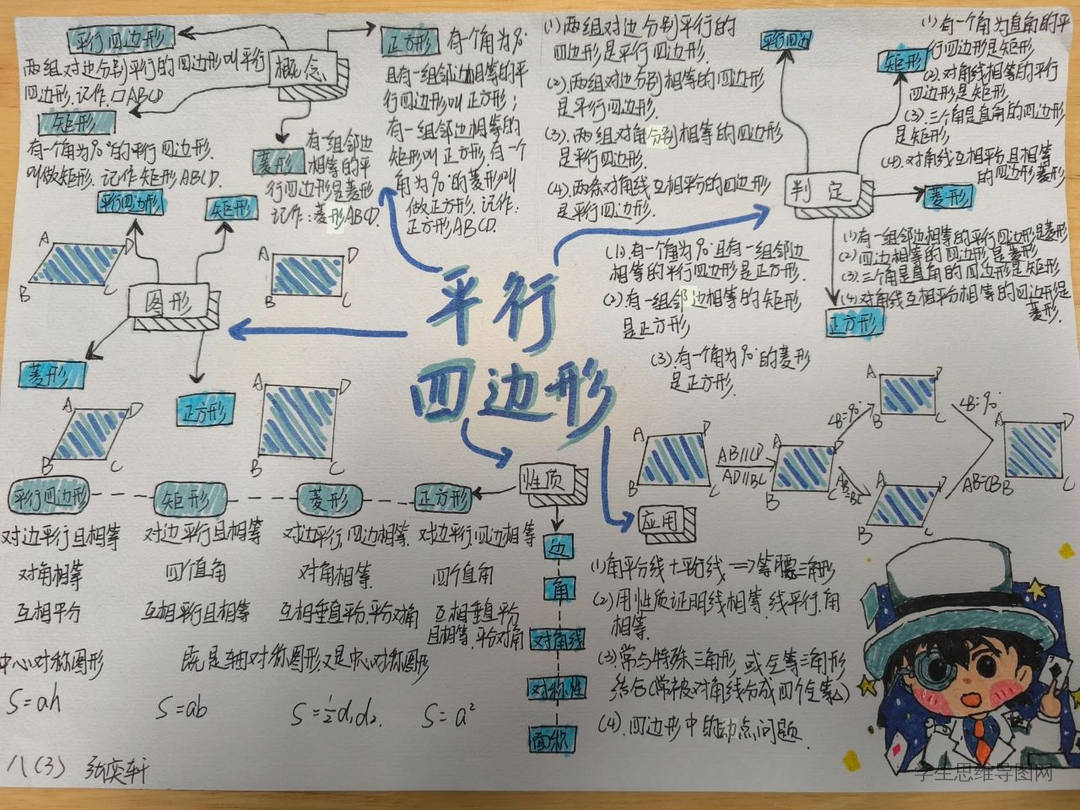 平行四边形
两组对边分别平行的四边形叫平行
四边形.记作.□ABCD
矩形
有一个角为90°的平行四边形.
叫做矩形.记作矩形ABCD.
概念
菱形
有一组邻边
相等的平
行四边形是菱形
记作:菱形ABCD.
正方形
有一个角为90°
且有一组邻边相等的平
行四边形叫正方形;
有一组邻边相等的
矩形叫正方形.有一个
角为90°的菱形叫
做正方形.记作:
正方形ABCD.
(1)两组对边分别平行的
四边形是平行四边形.
(2).两组对边分别相等的四边形
是平行四边形.
(3).两组对角分别相等的四边形
是平行四边形.
(4).两条对角线互相平分的四边形
是平行四边形.
平行四边
矩形
(1)有一个角为直角的平
行四边形是矩形.
(2).对角线相等的平行
四边形是矩形.
(3).三个角是直角的四边形
是矩形.
(4).对角线互相平分且相等
的四边形菱形
判定
菱形
(1)有一组邻边相等的平行四边形是菱形
(2)四边相等的四边形是菱形
(3).三个角是直角的四边形是矩形
(4)对角线互相平分相等的四边形是
菱形.
正方形
(1).有一个角为90°且有一组邻边
相等的平行四边形是正方形.
(2).有一组邻边相等的矩形
是正方形
(3).有一个角为90°的菱形
是正方形.
平行
四边形
平行四边形
矩形
图形
菱形
正方形
A D
B C
A D
B C
A D
B C
A D
B C
性质
平行四边形
矩形
菱形
正方形
边
对边平行且相等
对边平行且相等
对边平行.四边相等.
对边平行四边相等
角
对角相等
四个直角
对角相等.
四个直角
对角线
互相平分
互相平行且相等
互相垂直平分.平分对角
互相垂直平分
且相等.平分对角
对称性
中心对称图形
既是轴对称图形.又是中心对称图形
面积
S=ah
S=ab
S=½d₁d₂.
S=a²
应用
A D
B C
AB∥CD
AD∥BC
A D
B C
∠B=90°
AB=BC
A D
B C
A D
B C
∠B=90°
AB=CB
A D
B C
(1)角平分线+平行线=>等腰三角形
(2)用性质证明线相等.线平行.角
相等.
(3)常与特殊三角形或全等三角形
结合(常被对角线分成四个全等△)
(4).四边形中的动点问题.
八(3) 张奕轩
学生思维导图网